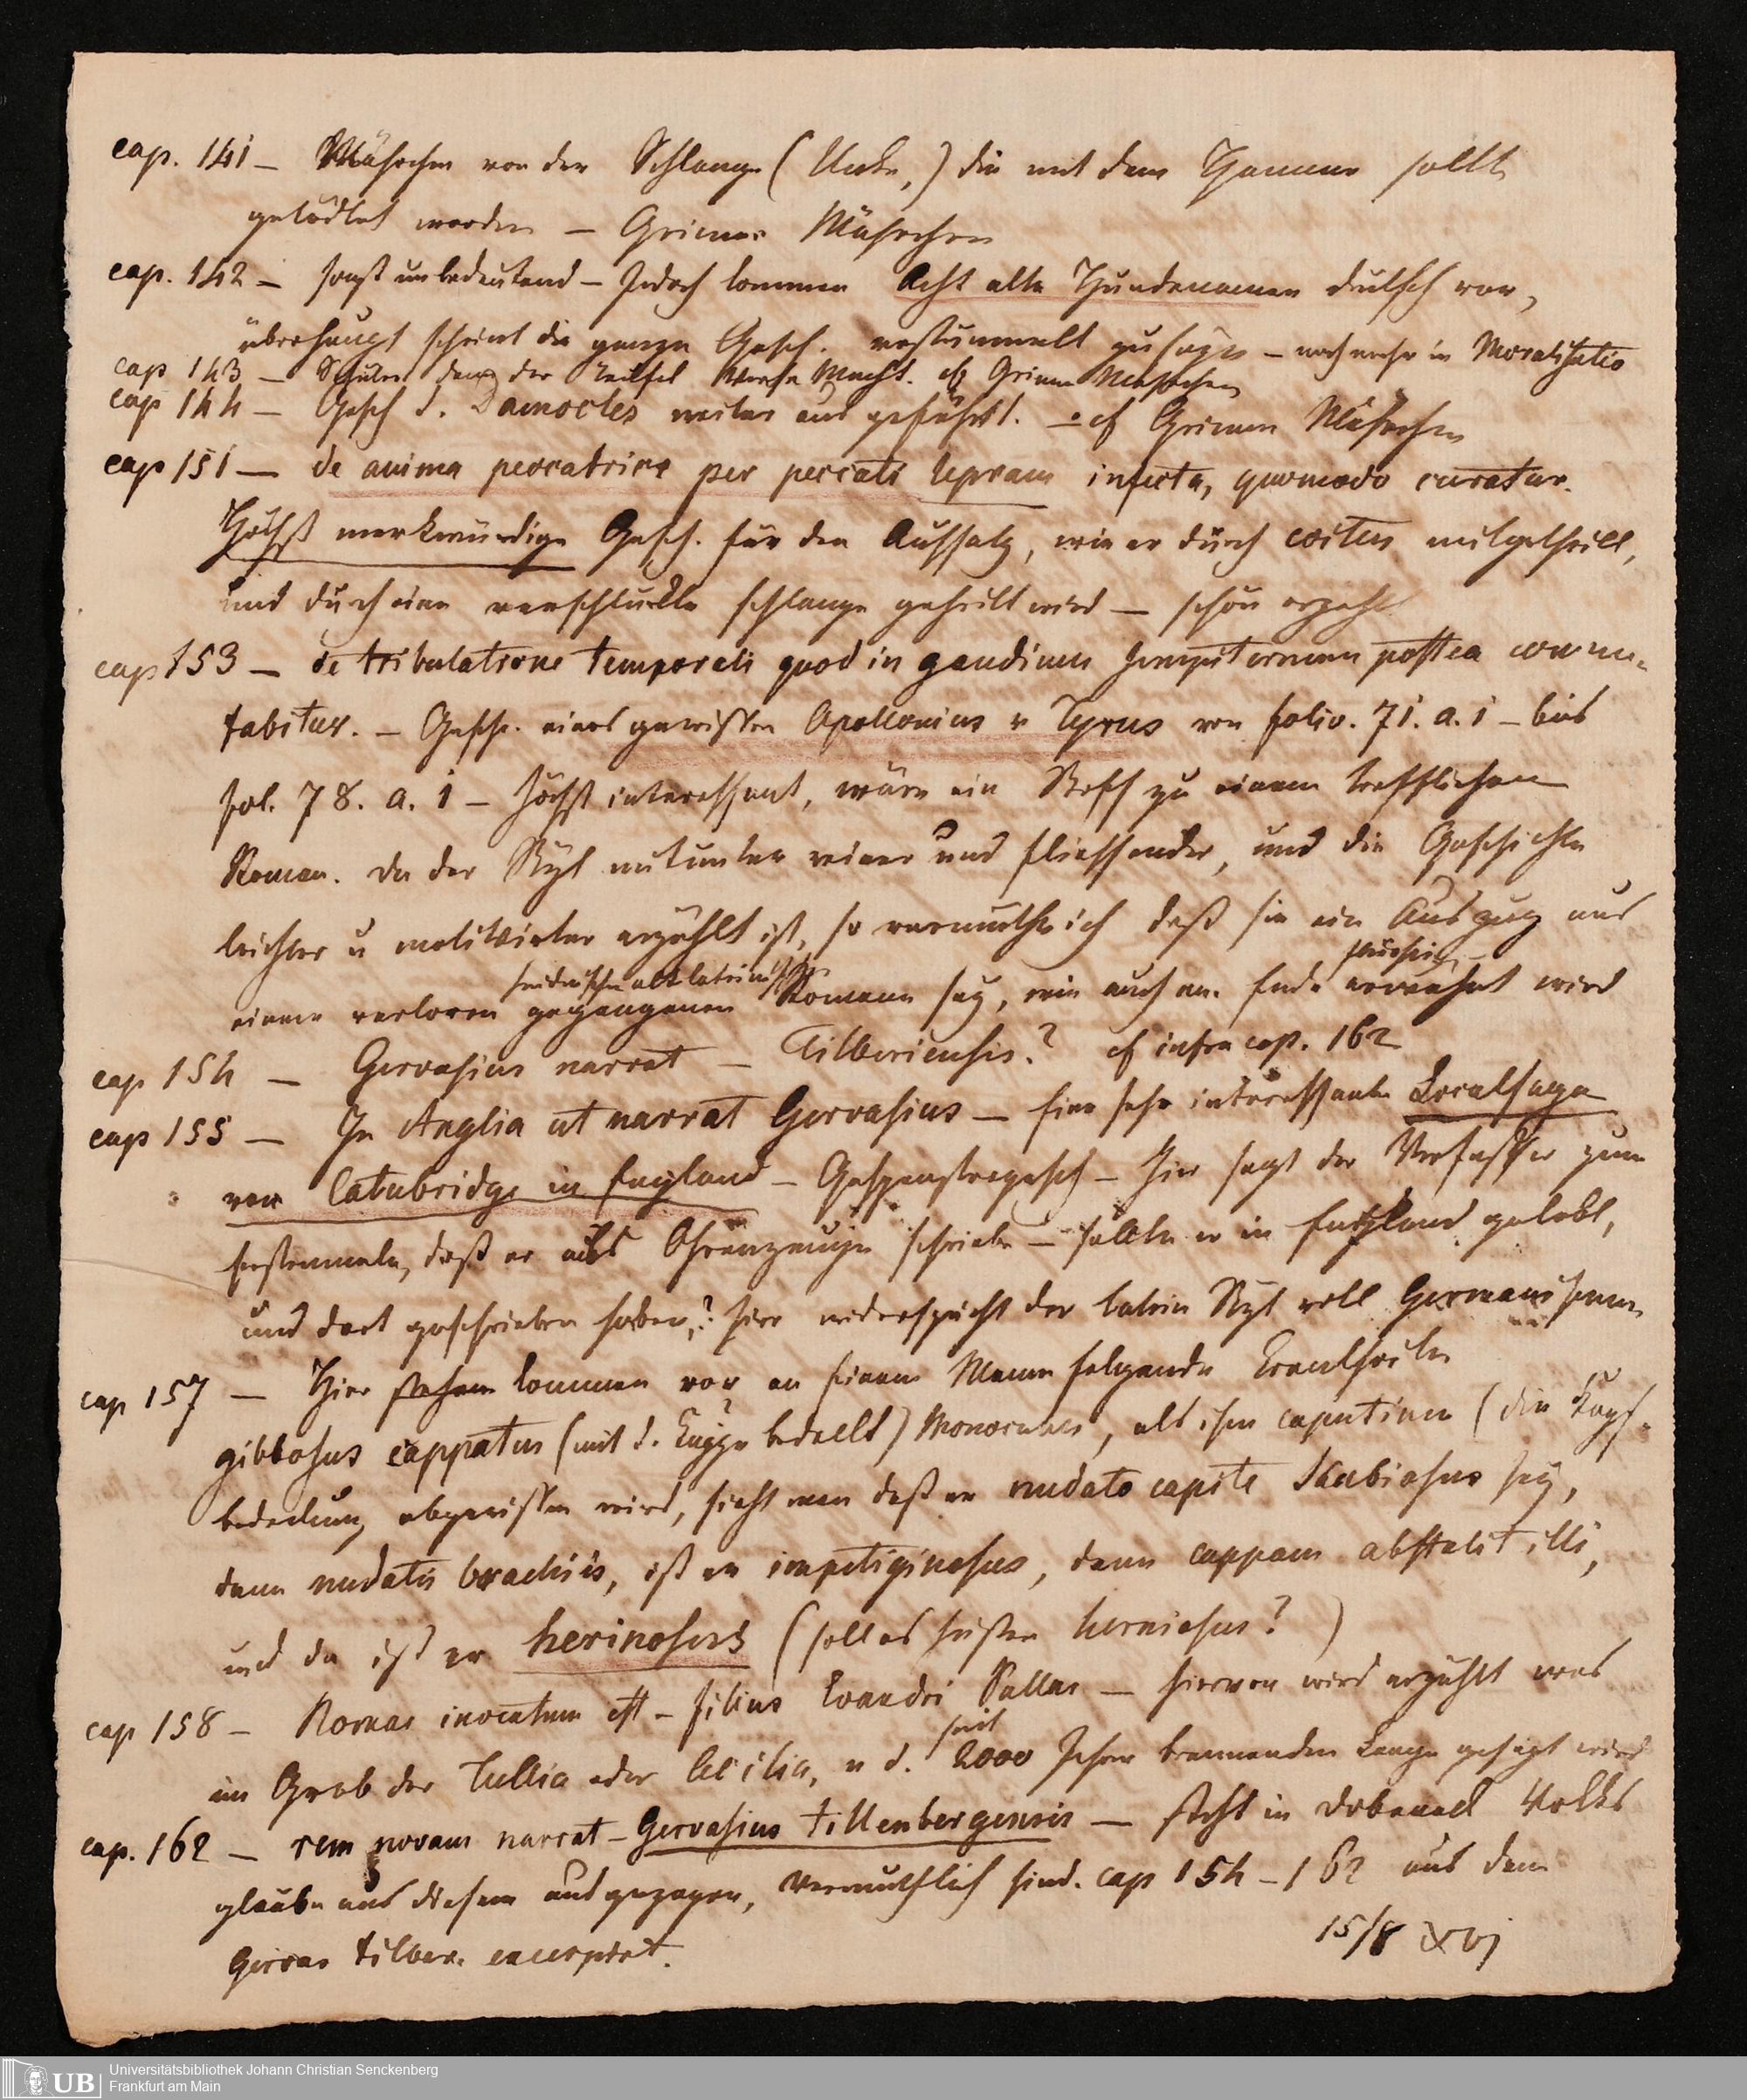 cap. 141 – Mährchen von der Schlange (Unke,) die mit dem Hammer sollte
getödtet werden – Grimms Mährchen
cap. 142 – sonst unbedeutend – Jedoch kommen Acht alte Hundenamen deutsch vor,
überhaupt scheint die ganze Gesch. verstümmelt zu seyn – noch mehr in Moralisatio
cap 143 – der Teufel Macht. cf Grimm Mährchen
cap 144 – Gesch d. Damocles weiter aus geführt. – cf Grimm Mährchen
cap 151 – de anima peccatrice per peccati lepram infecta, quomodo curatur.
Höchst merkwürdige Gesch. für den Aussatz, wie er durch coitus mitgetheilt,
und durch eine verschluckte schlange geheilt wird – schön erzählt
cap 153 – de tribulatione temporali quod in gaudium sempiternum postea commu-
tabitur. – Gesch. eines gewissen Apollonius v Tyrus von folio. 71. a. 1 – bis
fol. 78. a. 1 – höchst interessant, wäre ein Stoff zu einem trefflichen
Roman. Da der Styl mitunter reiner und fliessender, und die Geschichte
leichter u motivirter erzählt ist, so vermuthe ich daß sie ein Auszug aus
einem verloren gegangenen altlateinisch Romane sey, wie auch am Ende erwähnt wird
cap 154 – Gervasius narrat – Tilberiensis? cf infra cap. 162
cap 155 – In Anglia ut narrat Gervasius – Eine sehr interessante Localsage
von Catubridge in England – Gespenstergesch – Hier sagt der Verfasser zum
erstenmale, daß er als Ohrenzeuge schriebe – sollte er in England gelebt,
und dort geschrieben haben? hier widerspricht der latein Styl voll Germanismen
cap 157 – Hier kommen vor an einem Manne folgende
gibbosus cappatus (mit d. Kappe bedeckt) Monoculus, als ihm caputium (die Kopf-
bedeckung abgerissen wird, sieht man daß er nudato capite scabiosus sey,
dann nudatis brachiis, ist er impetiginosus, dann cappam abstulit illi,
und da ist er herinosus (soll es heissen herniosus?)
cap 158 – Romae inventum est – filius Evandri Pallas – hiervon wird erzählt was
im Grab der Tullia oder Cecilia, u d. seit 2000 Jahren brennenden Lampe gesagt wird
cap. 162 – rem novam narrat – Gervasius tillenbergensis – steht in Dobeneck Volks
glaube aus diesem ausgezogen, Vermuthlich sind. cap 154 – 162 aus dem
Gervas tilber. excerpirt.
15/8 XVI
UB Universitätsbibliothek Johann Christian Senckenberg
Frankfurt am Main